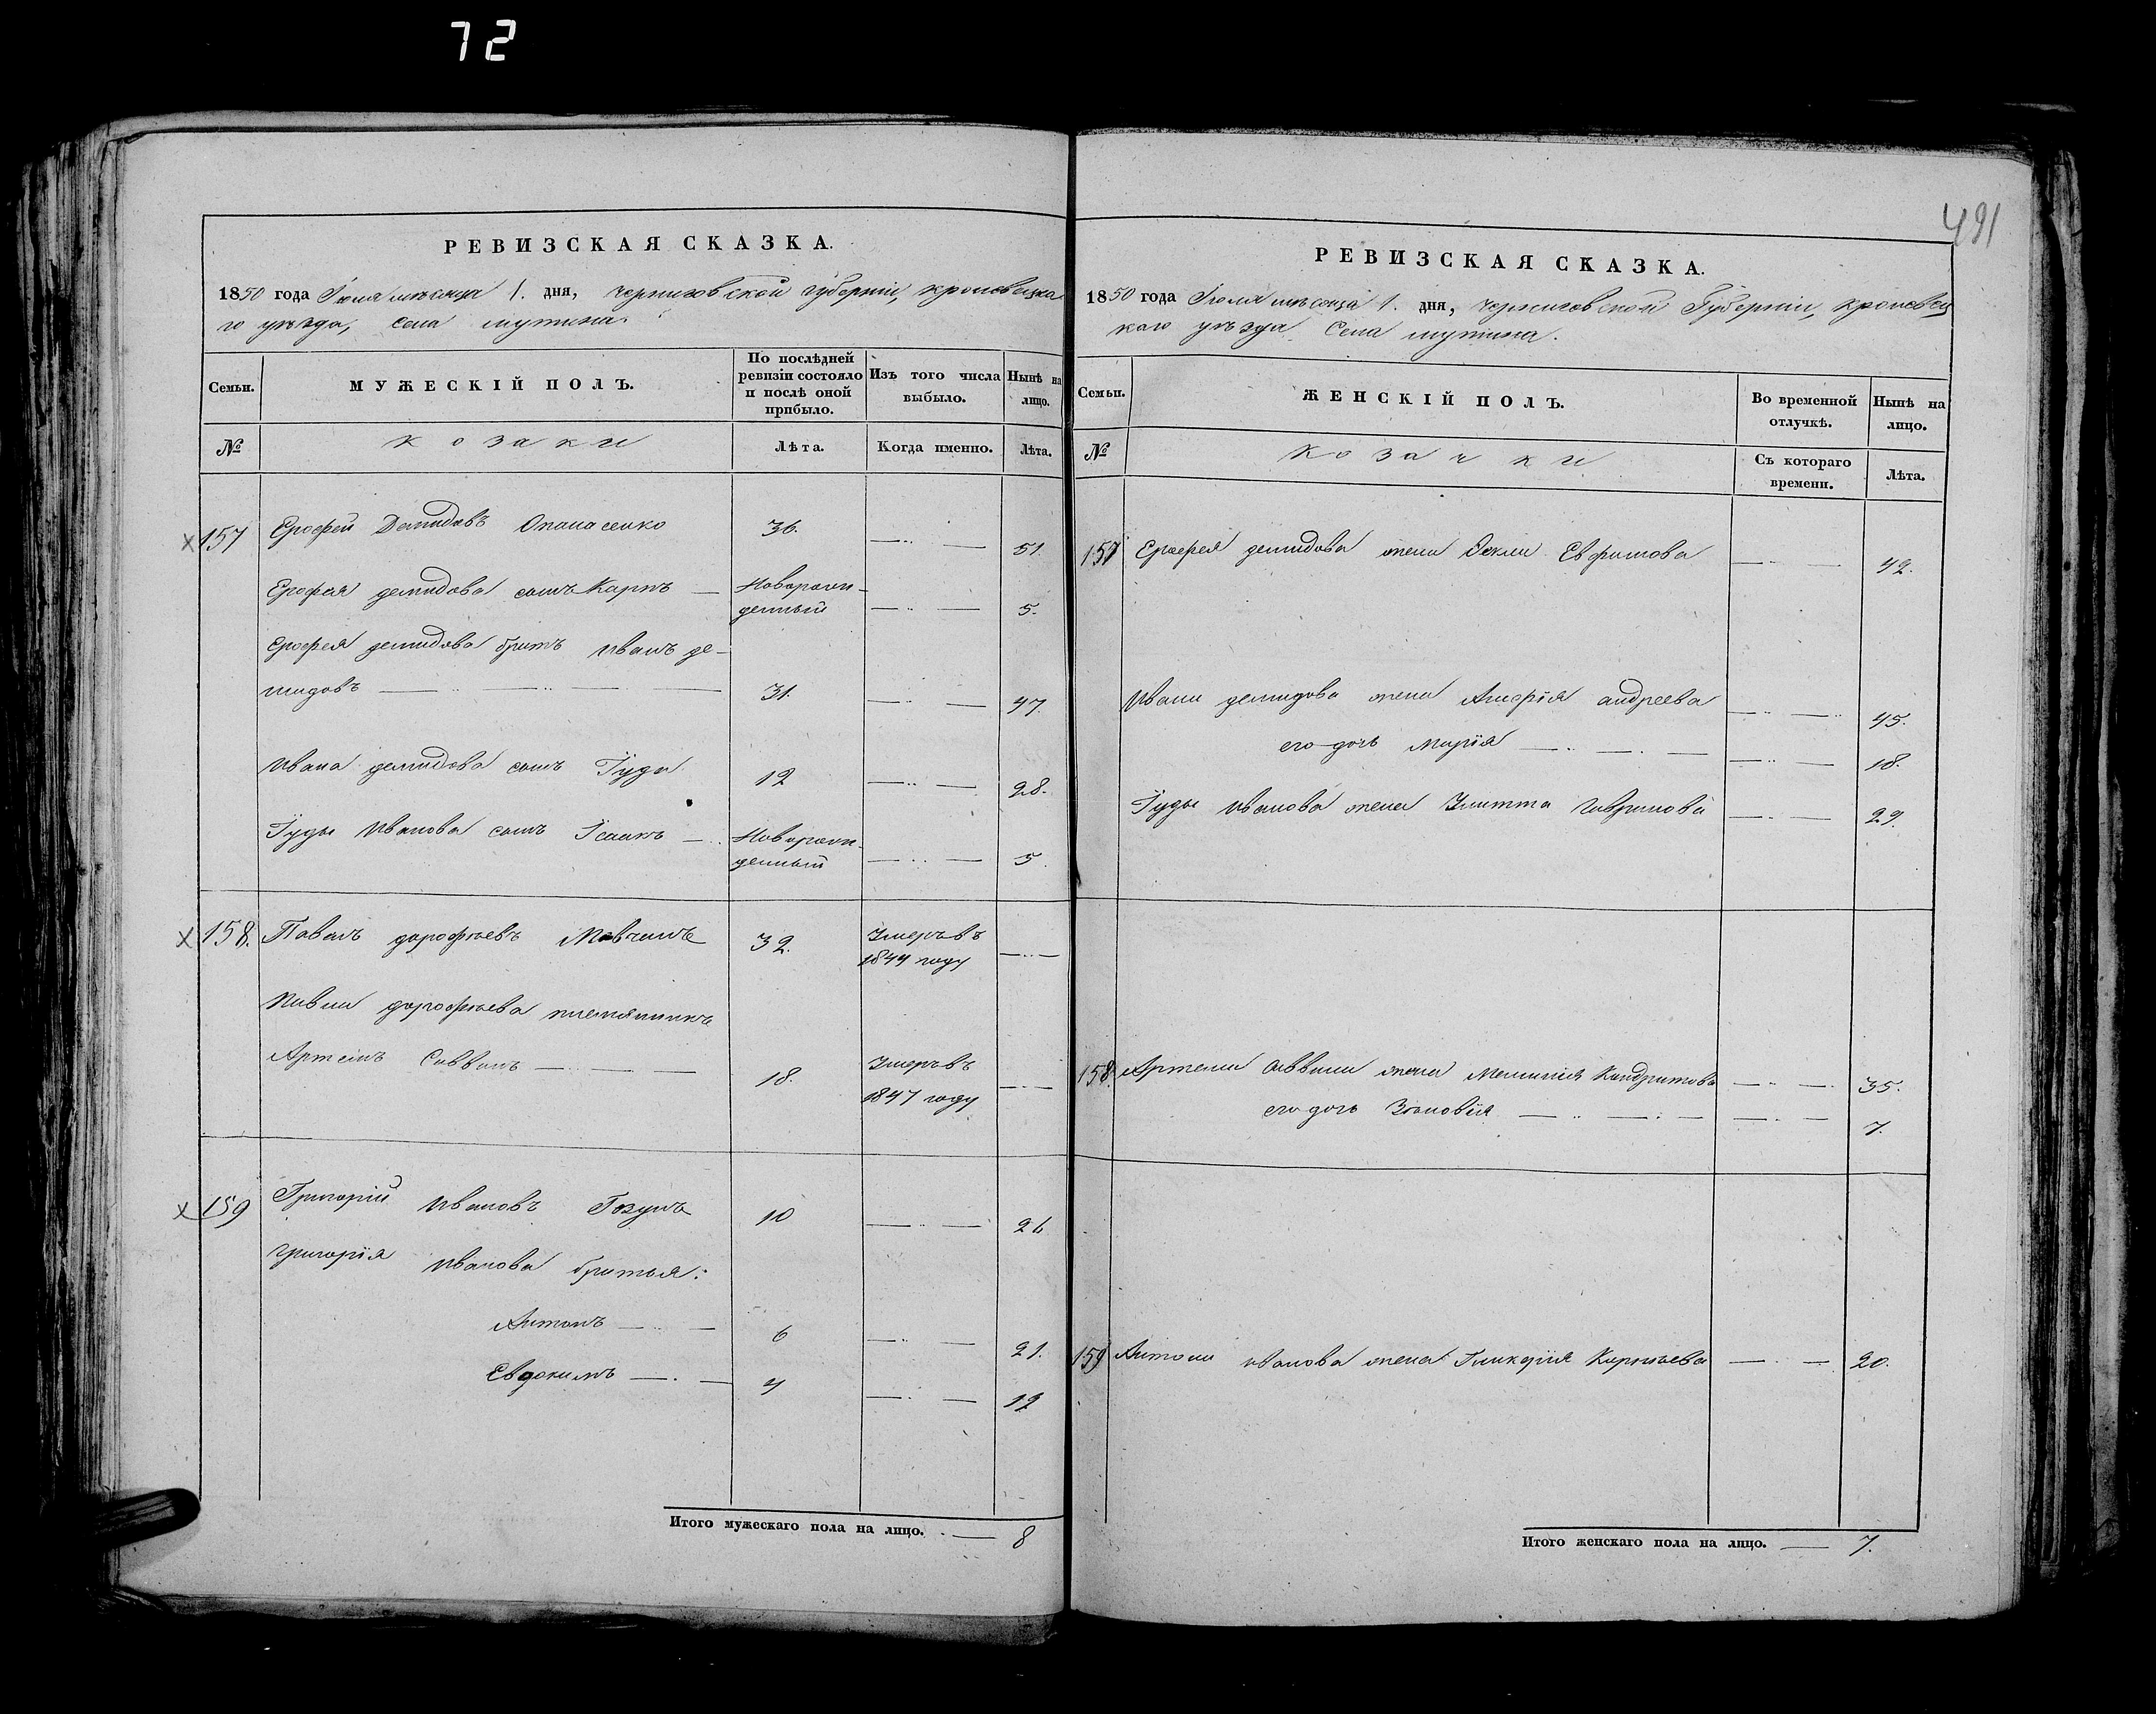 72
РЕВИЗСКАЯ СКАЗКА.
1850 года Іюля мѣсяца 1. дня, Черниговской Губерніи, Кролевецка
го уѣзда, Села Мутина.
Семьи. МУЖЕСКІЙ ПОЛЪ. По послѣдней ревизіи состояло и послѣ оной прибыло. Изъ того числа выбыло. Нынѣ на лицо.
№ Козаки Лѣта. Когда именно. Лѣта.
157 Ерофей Демидовъ Опанасенко 36. 51.
Ерофея Демидова сынъ Карпъ Новорож-
денный 5.
Ерофея Демидова братъ Иванъ Де-
мидовъ 31. 47.
Ивана Демидова сынъ Іуда 12 28.
Іуды Иванова сынъ Ісаакъ Новорож-
денный 5
158. Павелъ Дорофѣевъ 32. Умеръ въ
1844 году
Павла Дорофѣева племянникъ
Артемъ Саввинъ 18. Умеръ въ
1847 году
159 Григорій Ивановъ 10 26
Григорія Иванова братья:
Антонъ 6 21.
Евдокимъ 4 19
Итого мужескаго пола на лицо. 8
491
РЕВИЗСКАЯ СКАЗКА.
1850 года Іюля мѣсяца 1. дня, Черниговской Губерніи, Кролевец
каго уѣзда Села Мутина.
Семьи. ЖЕНСКІЙ ПОЛЪ. Во временной отлучкѣ. Нынѣ на лицо.
№ Козачки Съ котораго времени. Лѣта.
157 Ерофея Демидова жена Ѳекла 42.
Ивана Демидова жена Андреева 45.
его дочь Марія 18.
Іуды Иванова жена Улитта Гаврилова 29.
158. Артема Саввина жена Меланія Кондратова 35.
его дочь Зѣновія 7.
159 Антона Иванова жена Гликерія 20.
Итого женскаго пола на лицо. 7.